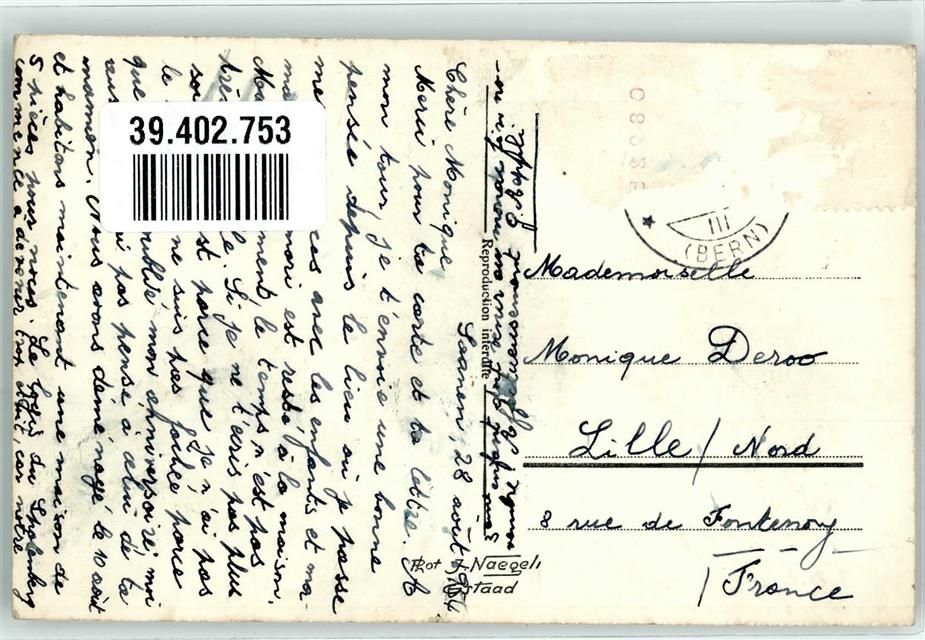 39.402.753
Saanen, 28 août 1954
Chère Monique,
Merci pour ta carte et ta lettre. A
mon tour, je t'envoie une bonne
pensée depuis le lieu où je passe
me ces avec les enfants et ma-
mari est resté à la maison.
ment le temps n'est pas
le. Si je ne t'écris pas plus
st parce que je n'ai pas
le ne suis pas fâchée parce
que ublié mon anniversaire, moi
i pas pensé à celui de ta
maman. Nous avons déménagé le 10 août
et habitons maintenant une maison de
5 pièces pour nous. Le logis du Spalenberg
commence à devenir trop petit, car notre
Affectueusement
Reproduction interdite
Phot Naegeli
Gstaad
III
(BERN)
Mademoiselle
Monique Deroo
Lille / Nord
8 rue de Fontenoy
/ France